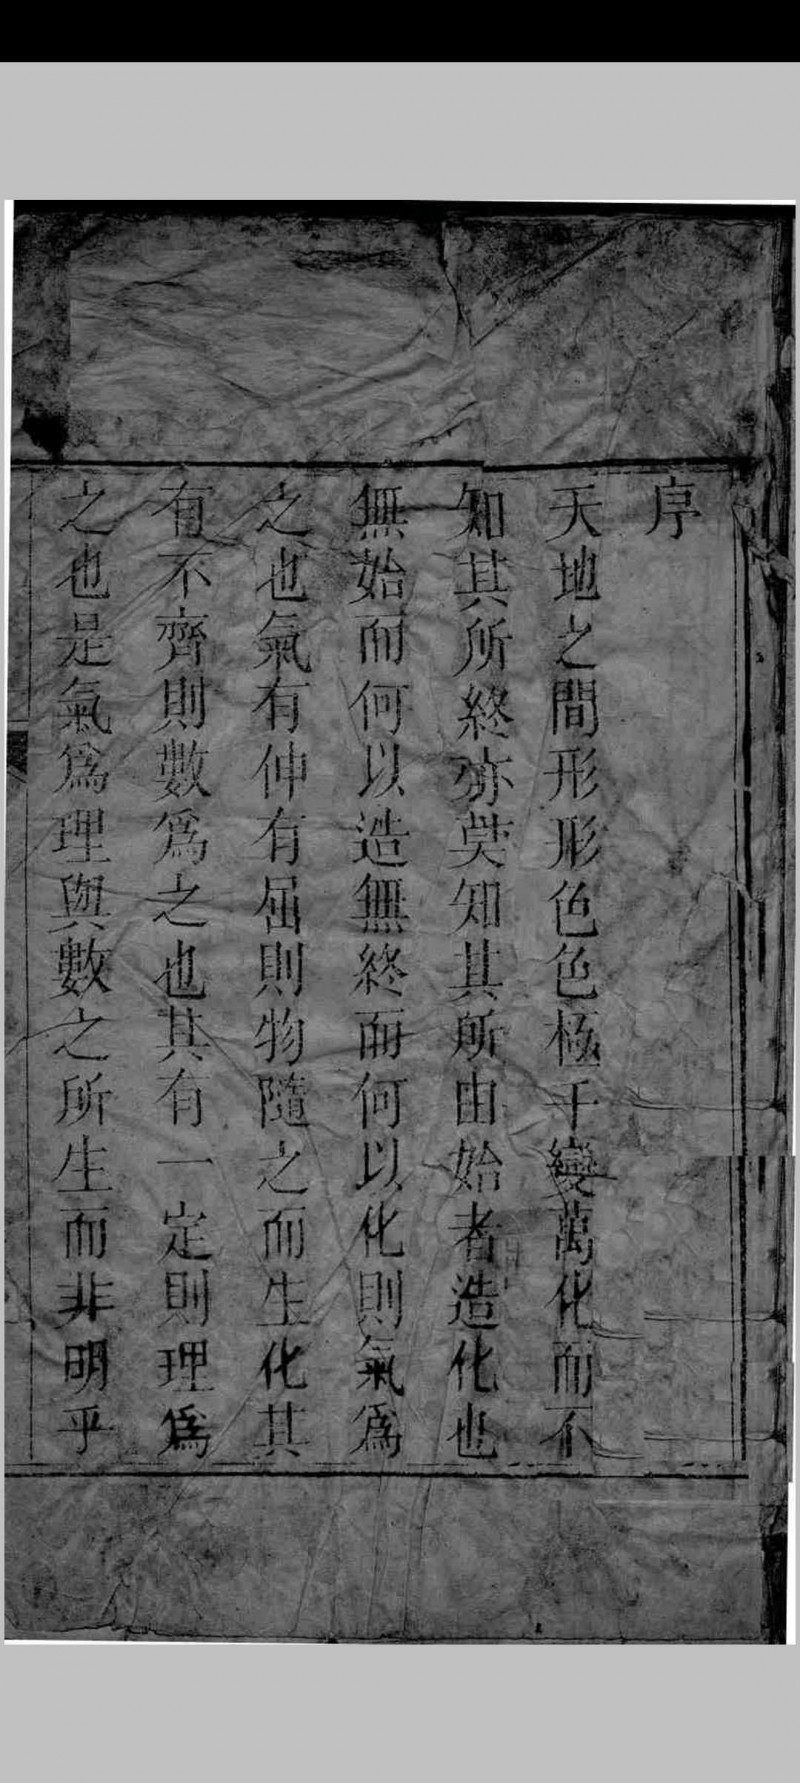 序
天地之間形形色色極千變萬化而不
知其所終亦莫知其所由始者造化也
無始而何以造無終而何以化則氣爲
之也氣有伸有屈則物隨之而生化其
有不齊則數爲之也其有一定則理爲
之也是氣爲理與數之所生而非明乎